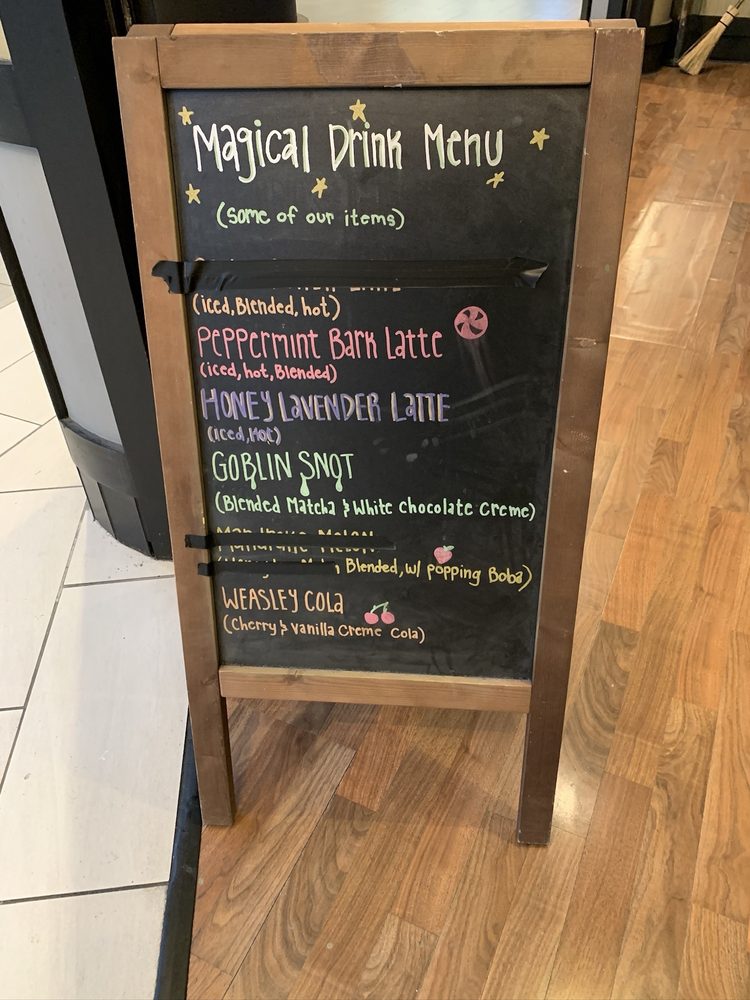 Magical Drink Menu
(some of our items)
(iced, Blended, hot)
Peppermint Bark Latte
(iced, hot, Blended)
HONEY LavENDER LaTTE
(Iced, Hot)
GOBLIN SNOT
(Blended Matcha & White Chocolate Creme)
Mandrake Melon
, Blended, w/ popping Boba)
WEASLEY COLa
(Cherry & vanilla Creme Cola)